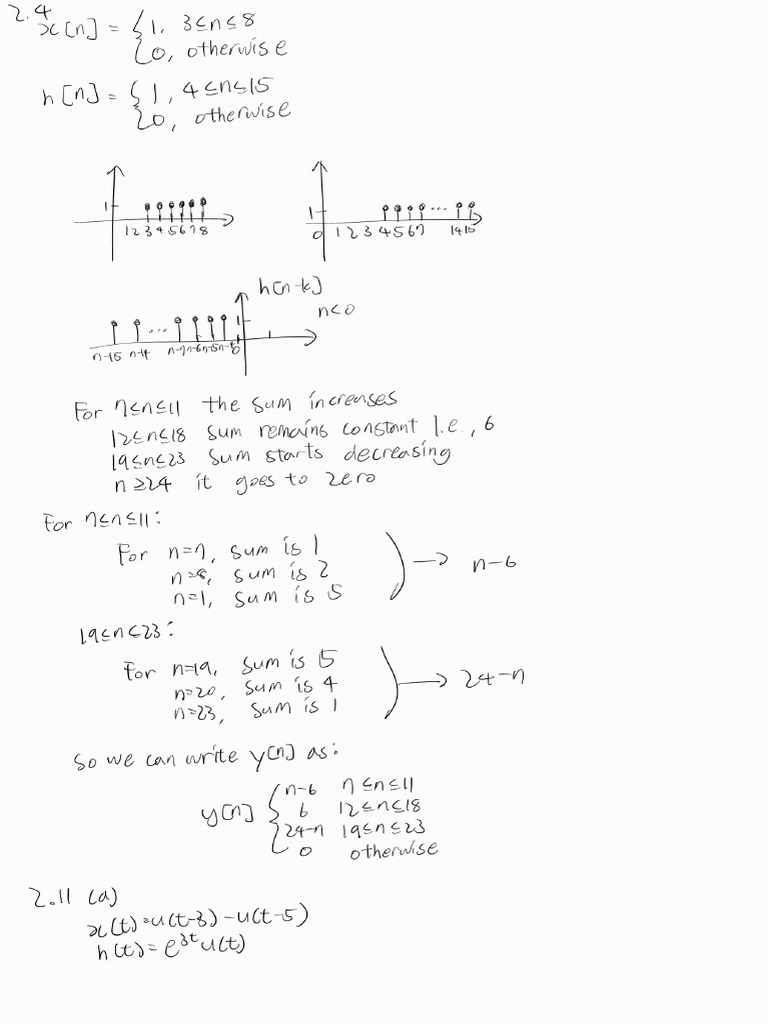 2.4
x[n] = {1, 3≤n≤8
0, otherwise
h[n] = {1, 4≤n≤15
0, otherwise
1
1 2 3 4 5 6 7 8
1
0 1 2 3 4 5 6 7 ... 14 15
h[n-k]
n<0
1
...
n-15 n-14 n-7 n-6 n-5 n-4 0
For 7≤n≤11 the sum increases
12≤n≤18 sum remains constant I.e., 6
19≤n≤23 sum starts decreasing
n≥24 it goes to zero
For 7≤n≤11:
For n=7, sum is 1
n=8, sum is 2
n=1, sum is 5
→ n-6
19≤n≤23:
For n=19, sum is 5
n=20, sum is 4
n=23, sum is 1
→ 24-n
So we can write y[n] as:
y[n] { n-6 7≤n≤11
6 12≤n≤18
24-n 19≤n≤23
0 otherwise
2.11 (a)
x(t)=u(t-3)-u(t-5)
h(t)=e^{3t}u(t)